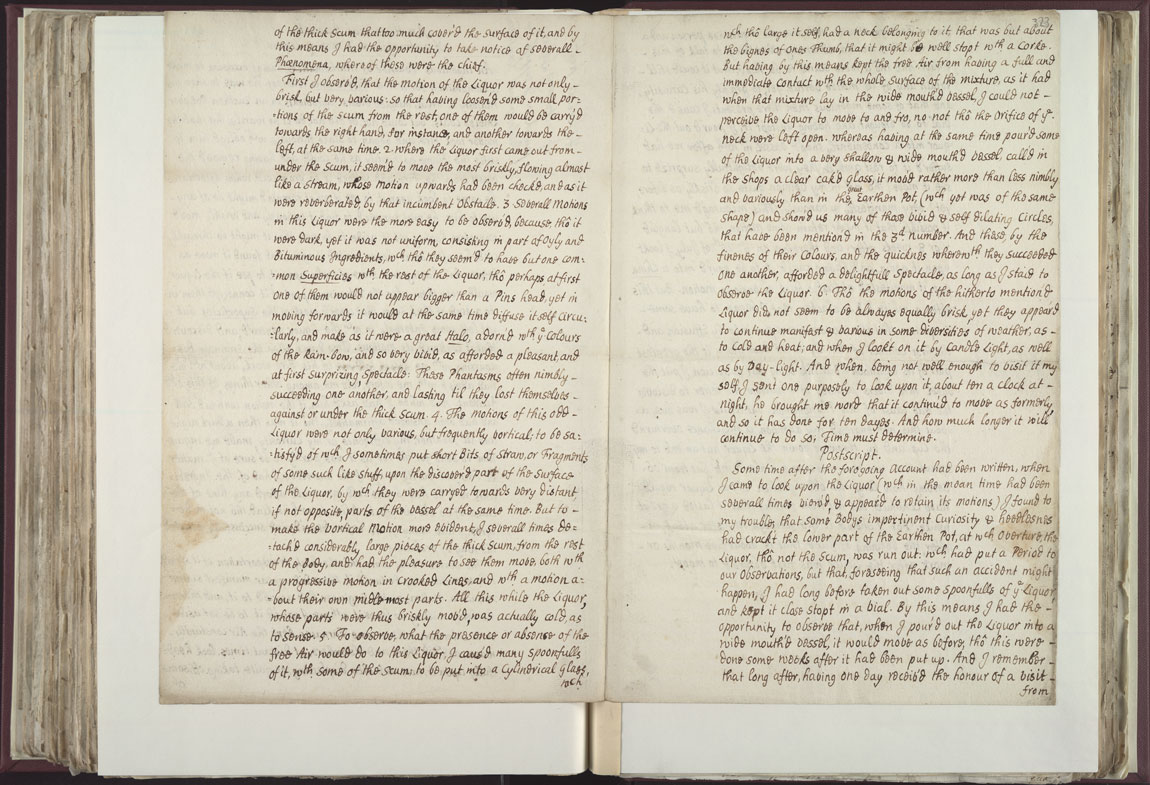 of the thick Scum that too much cover'd the surface of it, and by
this means I had the opportunity to take notice of severall -
Phænomena, whereof these were the chief.
First I observ'd, that the motion of the Liquor was not only -
brisk but very various: so that having loosen'd some small por=
=tions of the scum from the rest, one of them would be carry'd
towards the right hand, for instance, and another towards the -
left, at the same time. 2. where the Liquor first came out from -
under the Scum, it seem'd to move the most briskly, flowing almost
like a stream, whose motion upwards had been checkd, and as it
were reverberated, by that incumbent Obstacle. 3 Severall Motions
in this Liquor were the more easy to be observ'd, because, thô it
were dark, yet it was not uniform, consisting in part of oyly and
Bituminous Ingredients, wch thô they seem'd to have but one com=
=mon Superficies wth the rest of the Liquor, thô perhaps at first
one of them would not appear bigger than a Pins head, yet in
moving forwards it would at the same time diffuse it self circu=
=larly, and make as it were a great Halo, adorn'd wth ye Colours
of the Rain-bow, and so very vivid, as afforded a pleasant, and
at first surprizing, Spectacle: These Phantasms often nimbly -
succeeding one another, and lasting til they lost themselves -
against or under the thick Scum. 4. The motions of this odd -
Liquor were not only various, but frequently vortical; to be sa=
=tisfy'd of wch I sometimes put short Bits of Straw, or Fragments
of some such like stuff, upon the discover'd part of the Surface
of the Liquor, by wch they were carryed towards very distant,
if not opposite, parts of the vessel at the same time. But to -
make the Vortical Motion more evident, I severall times de=
=tach'd considerably large pieces of the thick Scum, from the rest
of the Body, and had the pleasure to see them move both wth
a progressive motion in Crooked Lines, and wth a motion a=
=bout their own middlemost parts. All this while the Liquor,
whose parts were thus briskly mov'd, was actually cold, as
to sense. 5. To observe, what the presence or absense of the
free Air would do to this Liquor, I caus'd many spoonfulls
of it, wth some of the Scum, to be put into a Cylindrical glass,
wch
323
wch thô large it self, had a neck belonging to it, that was but about
the bignes of ones Thumb, that it might be well stopt wth a Corke.
But having by this means kept the free Air from having a full and
immediate contact wth the whole Surface of the mixture, as it had
when that mixture lay in the wide mouth'd vessel, I could not -
perceive the Liquor to move to and fro, no not thô the Orifice of ye
neck were left open. whereas having at the same time pour'd some
of the Liquor into a very shallow & wide mouth'd vessel, call'd in
the shops a clear cake glass, it mov'd rather more than less nimbly
and variously than in the great Earthen Pot, (wch yet was of the same
shape) and shew'd us many of those vivid & self dilating Circles,
that have been mention'd in the 3d number. And these, by the
finenes of their Colours, and the quicknes wherewth they succeeded
one another, afforded a delightfull Spectacle, as long as I staid to
observe the Liquor. 6. Thô the motions of the hitherto mention'd
Liquor did not seem to be alwayes equally brisk, yet they appear'd
to continue manifest & various in some diversities of weather, as -
to Cold and heat; and when I lookt on it by Candle Light, as well
as by Day-light. And when, being not well enough to visit it my
self, I sent one purposely to look upon it, about ten a clock at -
night, he brought me word that it continu'd to move as formerly,
and so it has done for ten dayes. And how much longer it will
continue to do so, Time must determine.
Postscript.
Some time after the foregoing account had been written, when
I came to look upon the Liquor (wch in the mean time had been
severall times view'd, & appear'd to retain its motions) I found to
my trouble, that some Bodys impertinent Curiosity & heedlesnes
had crackt the lower part of the Earthen Pot, at wch Overture, the
Liquor, thô not the Scum, was run out: wch had put a Period to
our Observations, but that, foreseeing that such an accident might
happen, I had long before taken out some spoonfulls of ye Liquor
and kept it close stopt in a vial. By this means I had the -
opportunity to observe that, when I pour'd out the Liquor into a
wide mouth'd vessel, it would move as before, thô this were -
done some weeks after it had been put up. And I remember -
that long after, having one day receiv'd the honour of a visit -
from